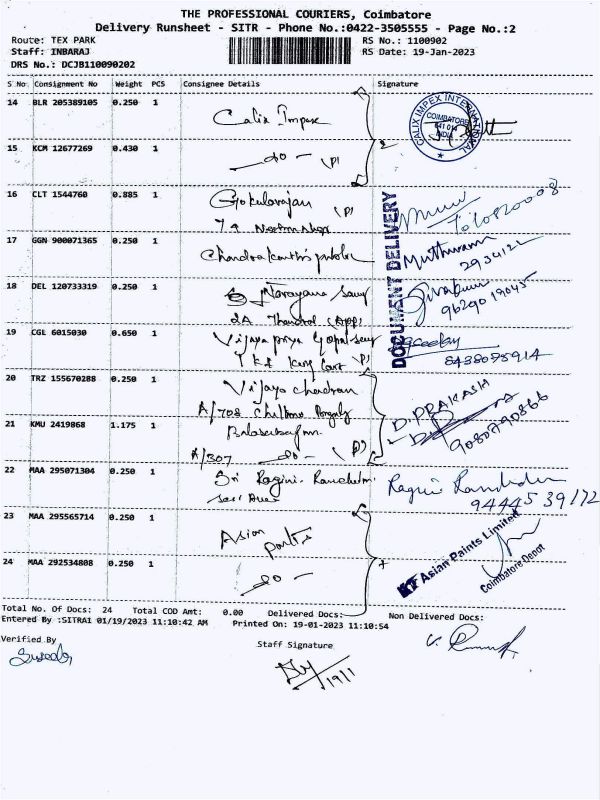 THE PROFESSIONAL COURIERS, Coimbatore
Delivery Runsheet - SITR - Phone No.:0422-3505555 - Page No.:2
Route: TEX PARK
RS No.: 1100902
Staff: INBARAJ
RS Date: 19-Jan-2023
DRS No.: DCJB110090202
S No Consignment No Weight PCS Consignee Details Signature
14 BLR 205389105 0.250 1 Calix Impex
CALIX IMPEX INTERNATIONAL COIMBATORE 641 014 INDIA
15 KCM 12677269 0.430 1 - do - (P)
16 CLT 1544760 0.885 1 Gokularajan (P)
DOCUMENT DELIVERY
17 GGN 900071365 0.250 1 Chandrakanthi
2934122
18 DEL 120733319 0.250 1 Narayana Samy
9629019045
19 CGL 6015030 0.650 1 Vijaya priya Gopalsamy
8438075914
20 TRZ 155670288 0.250 1 Vijaya chandran
A/708
D. PRAKASH
21 KMU 2419868 1.175 1
A/307 - do - (P)
9080790866
22 MAA 295071304 0.250 1 Sri Ragini Ramchdn
Ragini
9444539172
23 MAA 295565714 0.250 1 Asian
Asian Paints Limited
Coimbatore Depot
24 MAA 292534808 0.250 1 - do -
Total No. Of Docs: 24 Total COD Amt: 0.00 Delivered Docs: Non Delivered Docs:
Entered By :SITRA1 01/19/2023 11:10:42 AM Printed On: 19-01-2023 11:10:54
Verified By
Staff Signature
19/1